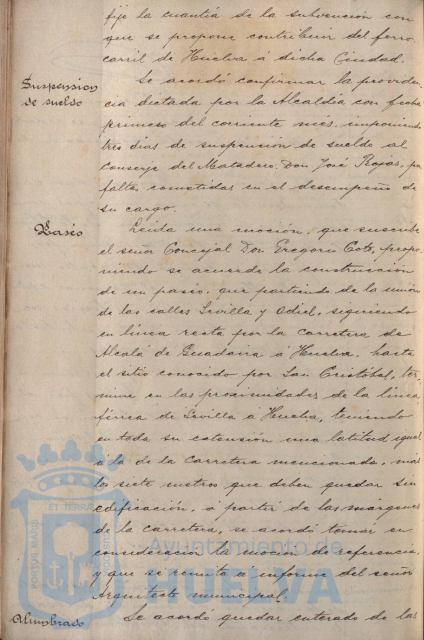 fije la cuantia de la subvención con
que se propone contribuir del ferro
carril de Huelva á dicha Ciudad.
Suspension de sueldo
Se acordó confirmar la providen
cia dictada por la Alcaldía con fecha
primero del corriente mes, imponiendo
tres dias de suspensión de sueldo al
Conserje del Matadero Don José Rojas, por
faltas cometidas en el desempeño de
su cargo.
Paseo
Leida una moción, que suscribe
el señor Concejal Don Gregorio Coto, propo-
niendo se acuerde la construcción
de un paseo, que partiendo de la unión
de las calles Sevilla y Odiel, siguiendo
en línea recta por la carretera de
Alcalá de Guadaira á Huelva, hasta
el sitio conocido por San Cristobal, ter-
mine en las proximidades de la línea
férrea de Sevilla á Huelva, teniendo
en toda su extensión una latitud igual
á la de la Carretera mencionada, más
los siete metros que deben quedar sin
edificación, á partir de las márgenes
de la Carretera, se acordó tomar en
consideración la moción de referencia,
y que se remita á informe del señor
Arquitecto municipal.
Alumbrado
Se acordó quedar enterado de las
PORTUS MARIS ET TERRAE
Ayuntamiento de
HUELVA